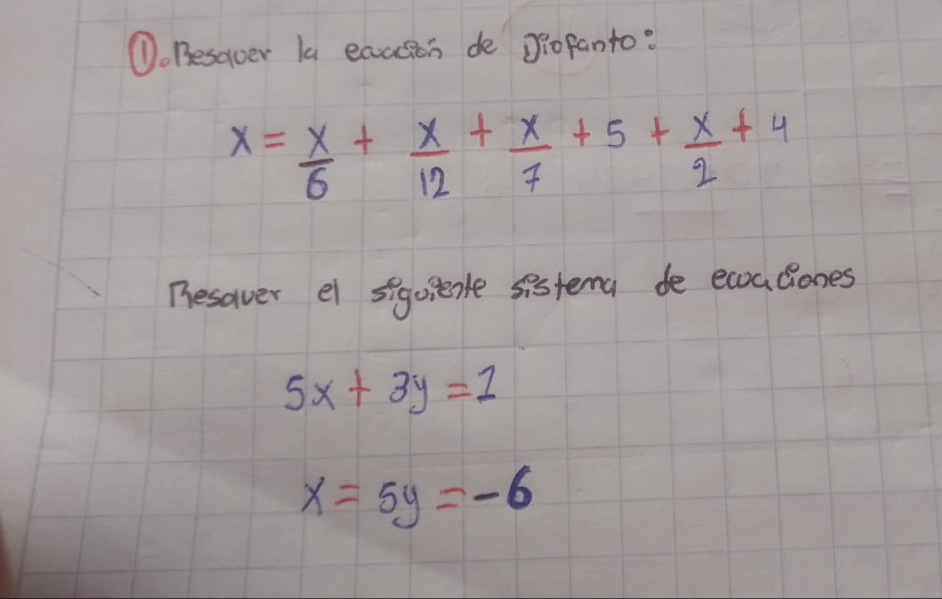 ①. Resolver la ecuación de Diofanto:
x = x/6 + x/12 + x/7 + 5 + x/2 + 4
Resolver el siguiente sistema de ecuaciones
5x + 3y = 1
x = 5y = -6